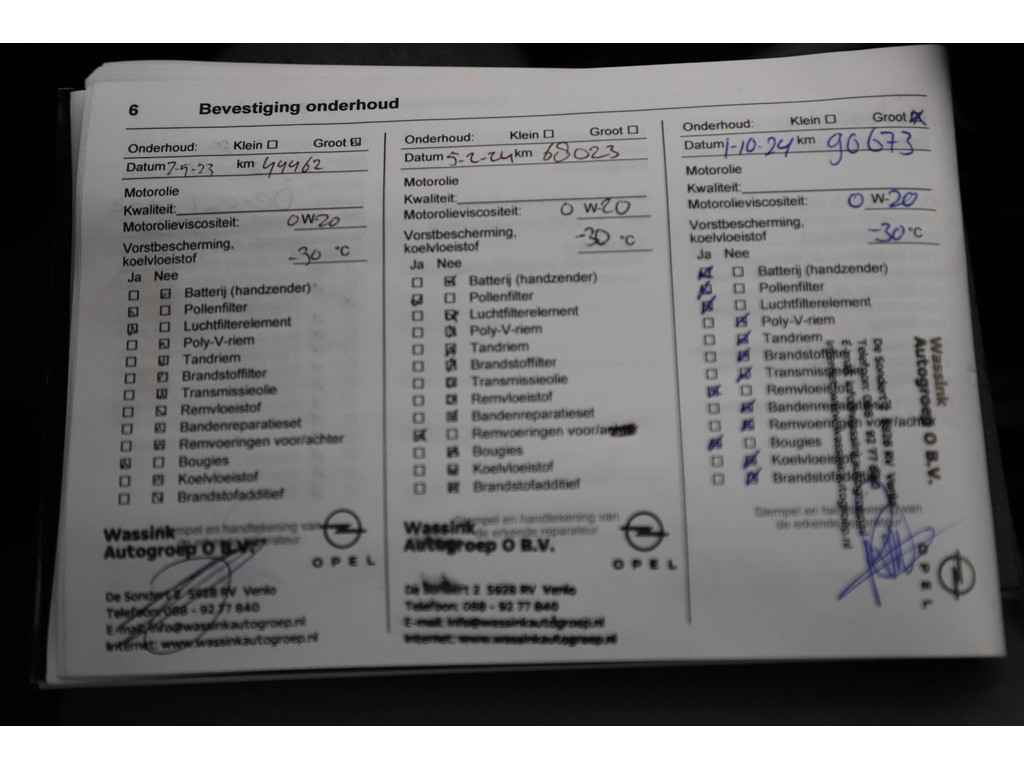 6 Bevestiging onderhoud
Onderhoud: Klein Groot
Datum 7-9-23 km 44462
Motorolie
Kwaliteit:
Motorolieviscositeit: 0W-20
Vorstbescherming,
koelvloeistof -30 °C
Ja Nee
Batterij (handzender)
Pollenfilter
Luchtfilterelement
Poly-V-riem
Tandriem
Brandstoffilter
Transmissieolie
Remvloeistof
Bandenreparatieset
Remvoeringen voor/achter
Bougies
Koelvloeistof
Brandstofadditief
Stempel en handtekening van
de erkende reparateur
Wassink
Autogroep O B.V.
OPEL
De Sondert 2 5928 RV Venlo
Telefoon: 088 - 92 77 840
E-mail: info@wassinkautogroep.nl
Internet: www.wassinkautogroep.nl
Onderhoud: Klein Groot
Datum 5-2-24 km 68023
Motorolie
Kwaliteit:
Motorolieviscositeit: 0 W-20
Vorstbescherming,
koelvloeistof -30 °C
Ja Nee
Batterij (handzender)
Pollenfilter
Luchtfilterelement
Poly-V-riem
Tandriem
Brandstoffilter
Transmissieolie
Remvloeistof
Bandenreparatieset
Remvoeringen voor/achter
Bougies
Koelvloeistof
Brandstofadditief
Stempel en handtekening van
de erkende reparateur
Wassink
Autogroep O B.V.
OPEL
De Sondert 2 5928 RV Venlo
Telefoon: 088 - 92 77 840
E-mail: info@wassinkautogroep.nl
Internet: www.wassinkautogroep.nl
Onderhoud: Klein Groot
Datum 1-10-24 km 90673
Motorolie
Kwaliteit:
Motorolieviscositeit: 0 W-20
Vorstbescherming,
koelvloeistof -30 °C
Ja Nee
Batterij (handzender)
Pollenfilter
Luchtfilterelement
Poly-V-riem
Tandriem
Brandstoffilter
Transmissieolie
Remvloeistof
Bandenreparatieset
Remvoeringen voor/achter
Bougies
Koelvloeistof
Brandstofadditief
Stempel en handtekening van
de erkende reparateur
Wassink
Autogroep O B.V.
De Sondert 2 5928 RV Venlo
Telefoon: 088 - 92 77 840
OPEL